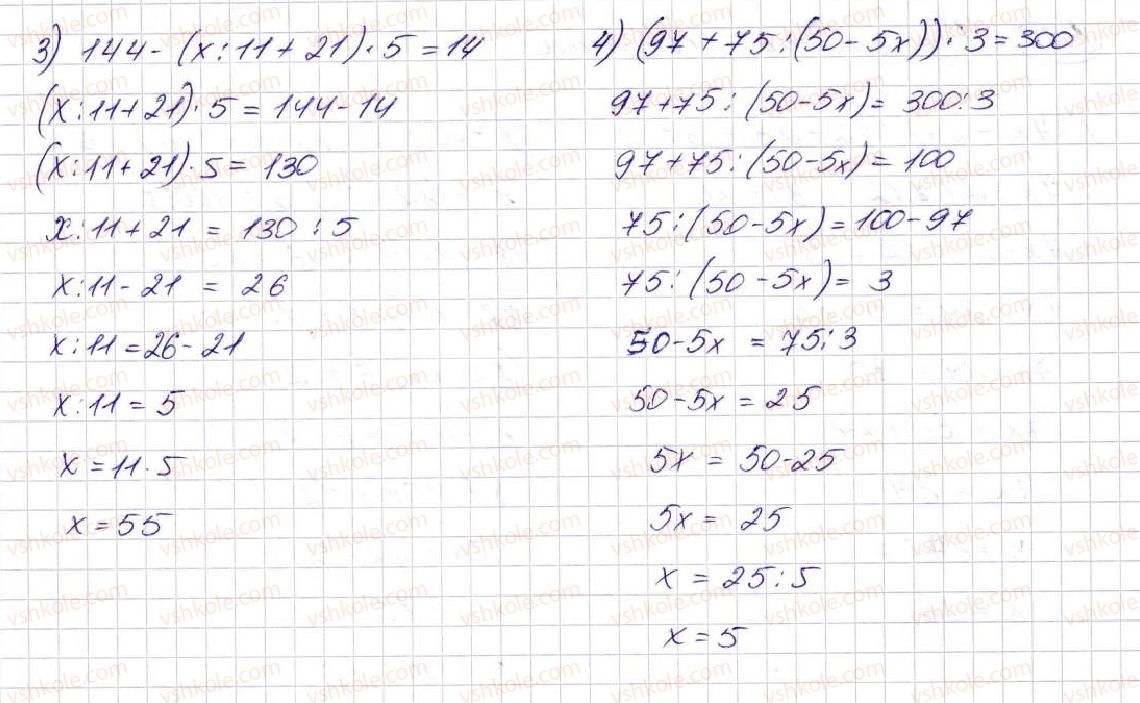 3) 144 - (x : 11 + 21) · 5 = 14
(x : 11 + 21) · 5 = 144 - 14
(x : 11 + 21) · 5 = 130
x : 11 + 21 = 130 : 5
x : 11 - 21 = 26
x : 11 = 26 - 21
x : 11 = 5
x = 11 · 5
x = 55
4) (97 + 75 : (50 - 5x)) · 3 = 300
97 + 75 : (50 - 5x) = 300 : 3
97 + 75 : (50 - 5x) = 100
75 : (50 - 5x) = 100 - 97
75 : (50 - 5x) = 3
50 - 5x = 75 : 3
50 - 5x = 25
5x = 50 - 25
5x = 25
x = 25 : 5
x = 5
vshkole.com